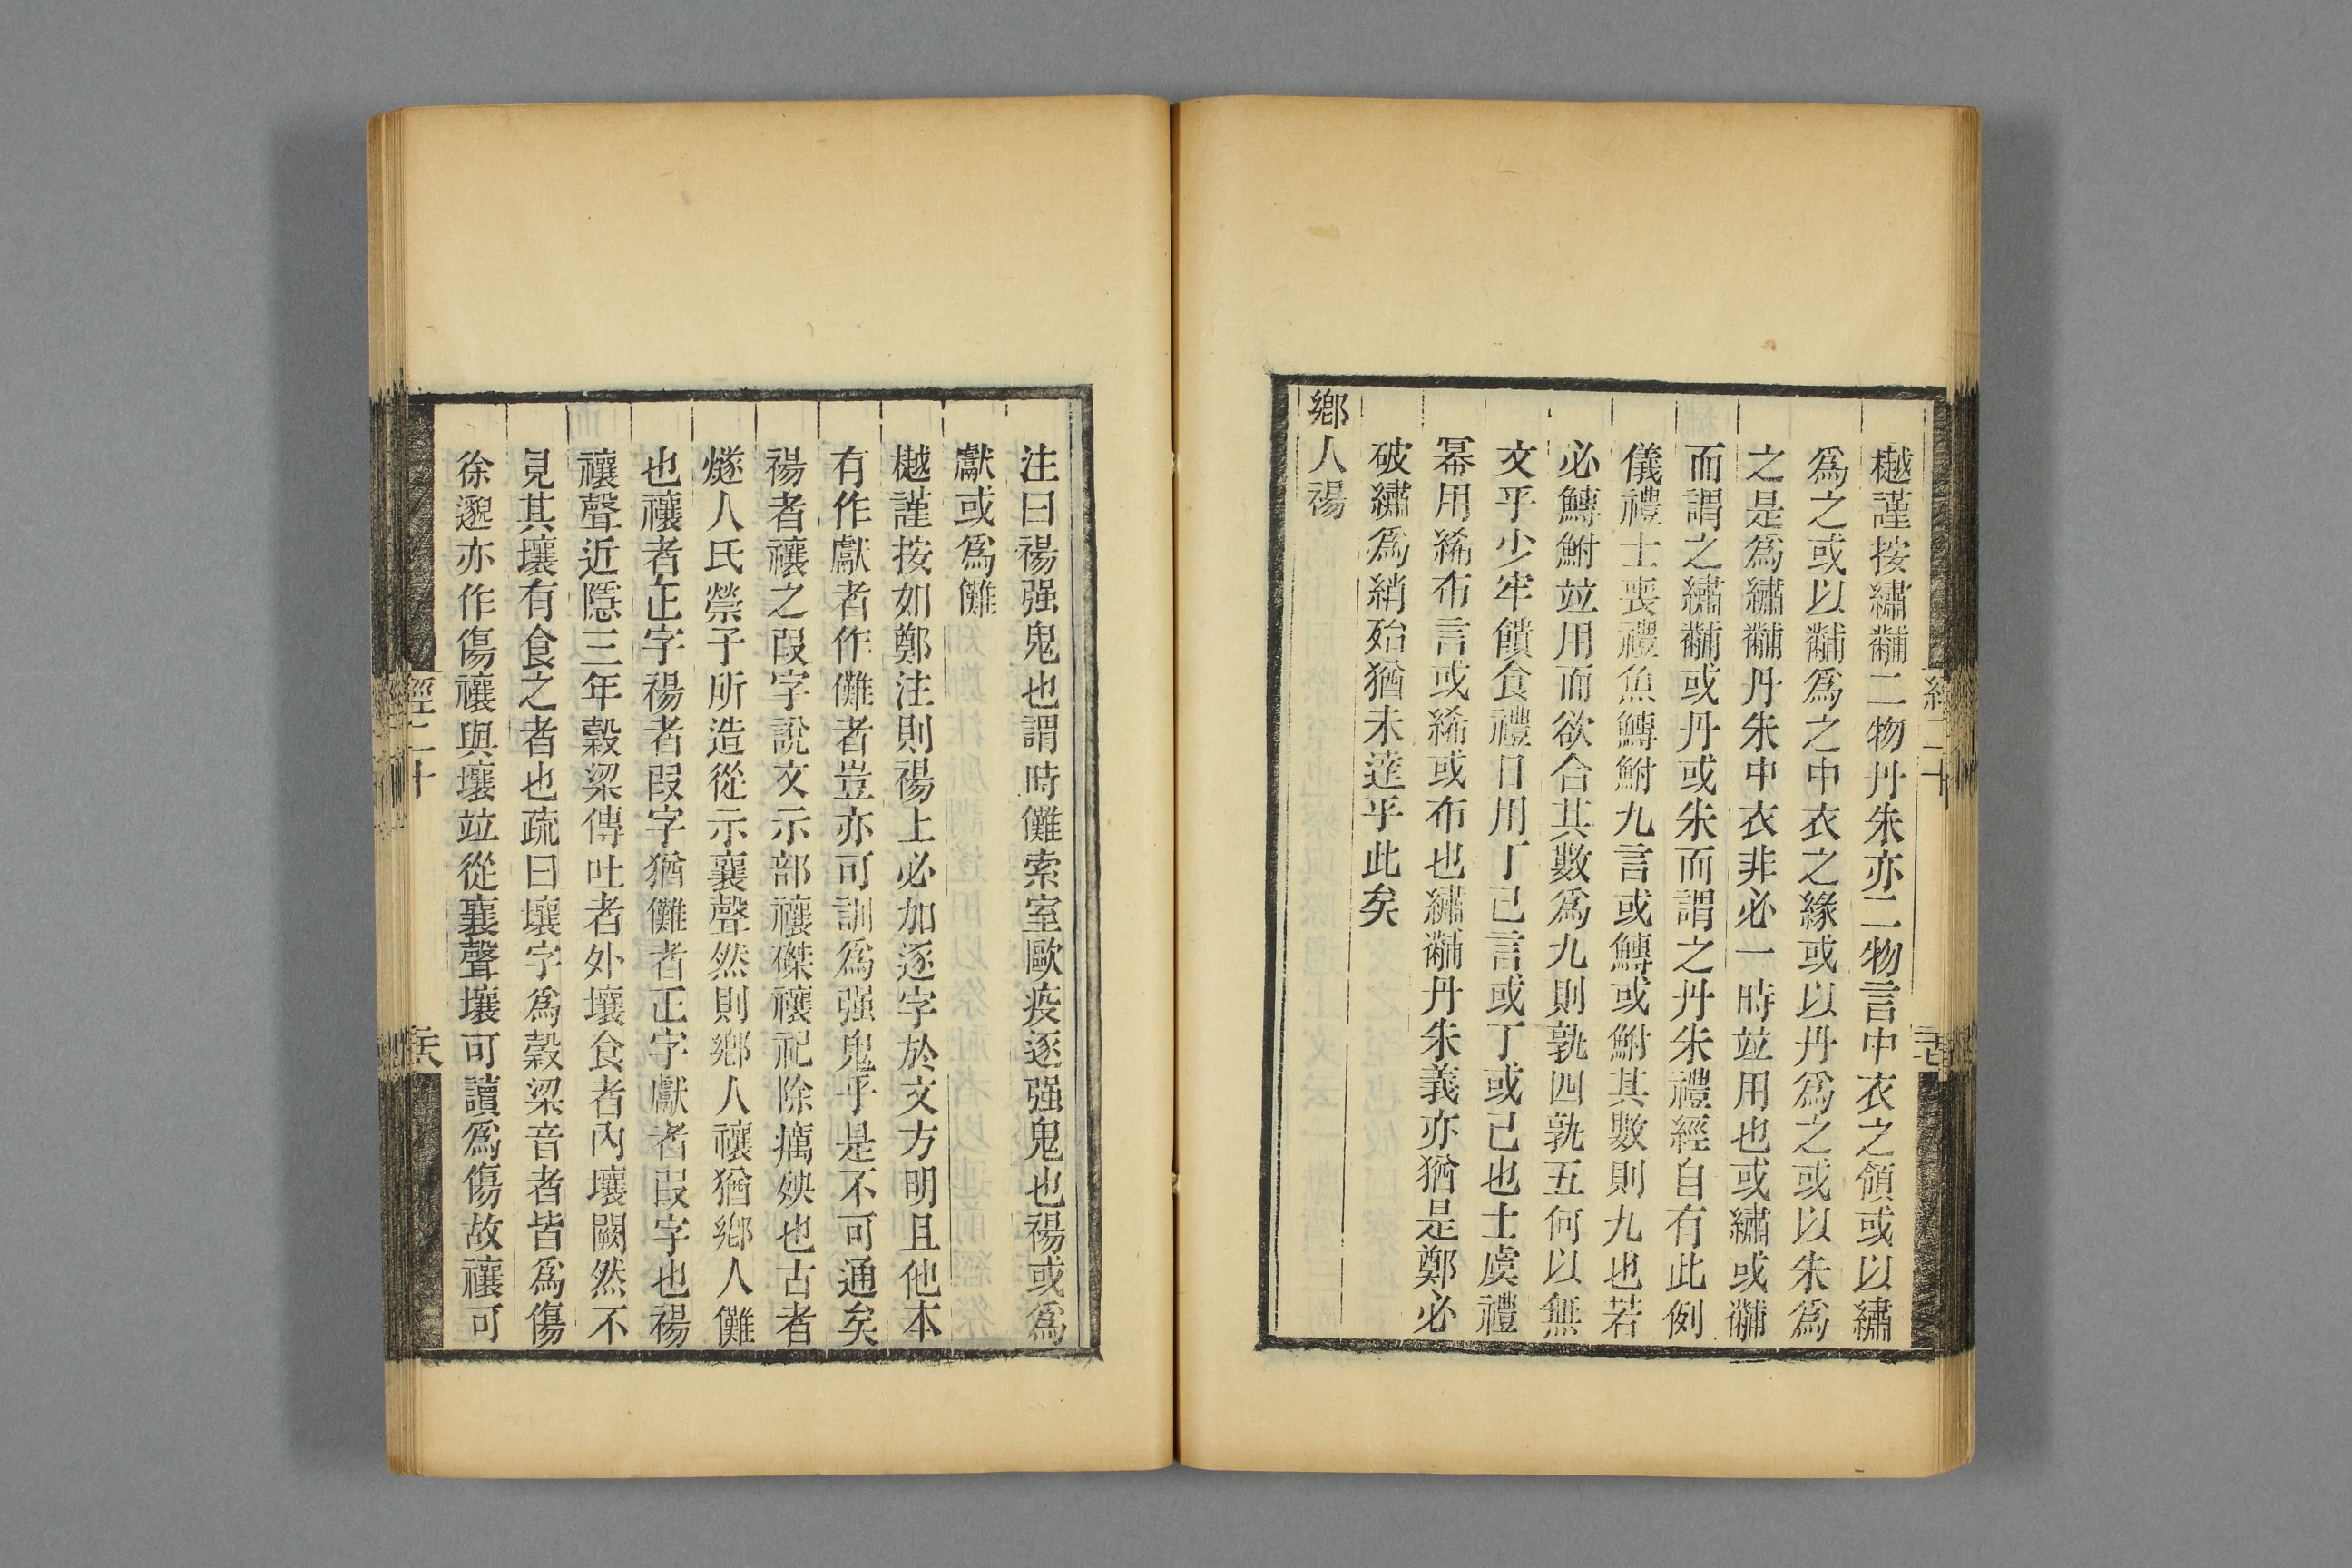 樾謹按繡黼二物丹朱亦二物言中衣之領或以繡
爲之或以黼爲之中衣之緣或以丹爲之或以朱爲
之是爲繡黼丹朱中衣非必一時竝用也或繡或黼
而謂之繡黼或丹或朱而謂之丹朱禮經自有此例
儀禮士喪禮魚鱄鮒九言或鱄或鮒其數則九也若
必鱄鮒竝用而欲合其數爲九則孰四孰五何以無
文乎少牢饋食禮日用丁己言或丁或己也士虞禮
冪用絺布言或絺或布也繡黼丹朱義亦猶是鄭必
破繡爲綃殆猶未達乎此矣
鄉人禓
經二十
注曰禓强鬼也謂時儺索室歐疫逐强鬼也禓或爲
獻或爲儺
樾謹按如鄭注則禓上必加逐字於文方明且他本
有作獻者作儺者豈亦可訓爲强鬼乎是不可通矣
禓者禳之叚字說文示部禳磔禳祀除癘殃也古者
燧人氏禜子所造從示襄聲然則鄉人禳猶鄉人儺
也禳者正字禓者叚字猶儺者正字獻者叚字也禓
禳聲近隱三年穀梁傳吐者外壤食者內壤闕然不
見其壤有食之者也疏曰壤字爲穀梁音者皆爲傷
徐邈亦作傷禳與壤竝從襄聲壤可讀爲傷故禳可
經二十